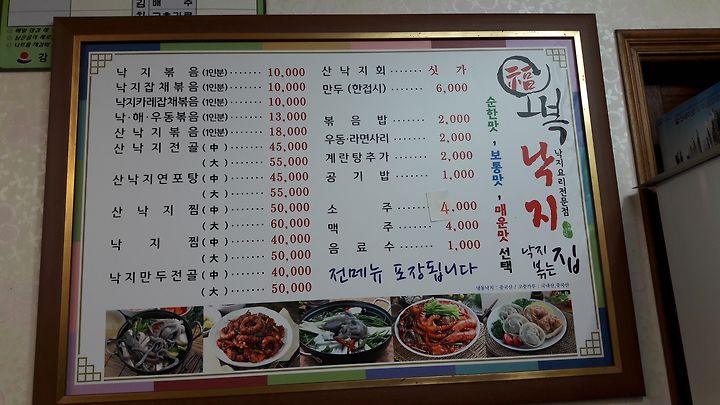 낙지볶음(1인분)······· 10,000
낙지잡채볶음(1인분)······· 10,000
낙지카레잡채볶음(1인분)······· 10,000
낙·해·우동볶음(1인분)······· 13,000
산낙지볶음(1인분)······· 18,000
산낙지전골(中)······· 45,000
(大)······· 55,000
산낙지연포탕(中)······· 45,000
(大)······· 55,000
산낙지찜(中)······· 50,000
(大)······· 60,000
낙지찜(中)······· 40,000
(大)······· 50,000
낙지만두전골(中)······· 40,000
(大)······· 50,000
산낙지회······· 싯가
만두(한접시)······· 6,000
볶음밥······· 2,000
우동·라면사리······· 2,000
계란탕추가······· 2,000
공기밥······· 1,000
소주······· 4,000
맥주······· 4,000
음료수······· 1,000
전메뉴 포장됩니다
순한맛, 보통맛, 매운맛 선택
福
복낙지
낙지요리전문점
낙지볶는집
냉동낙지 : 중국산 / 고춧가루 : 국내산,중국산